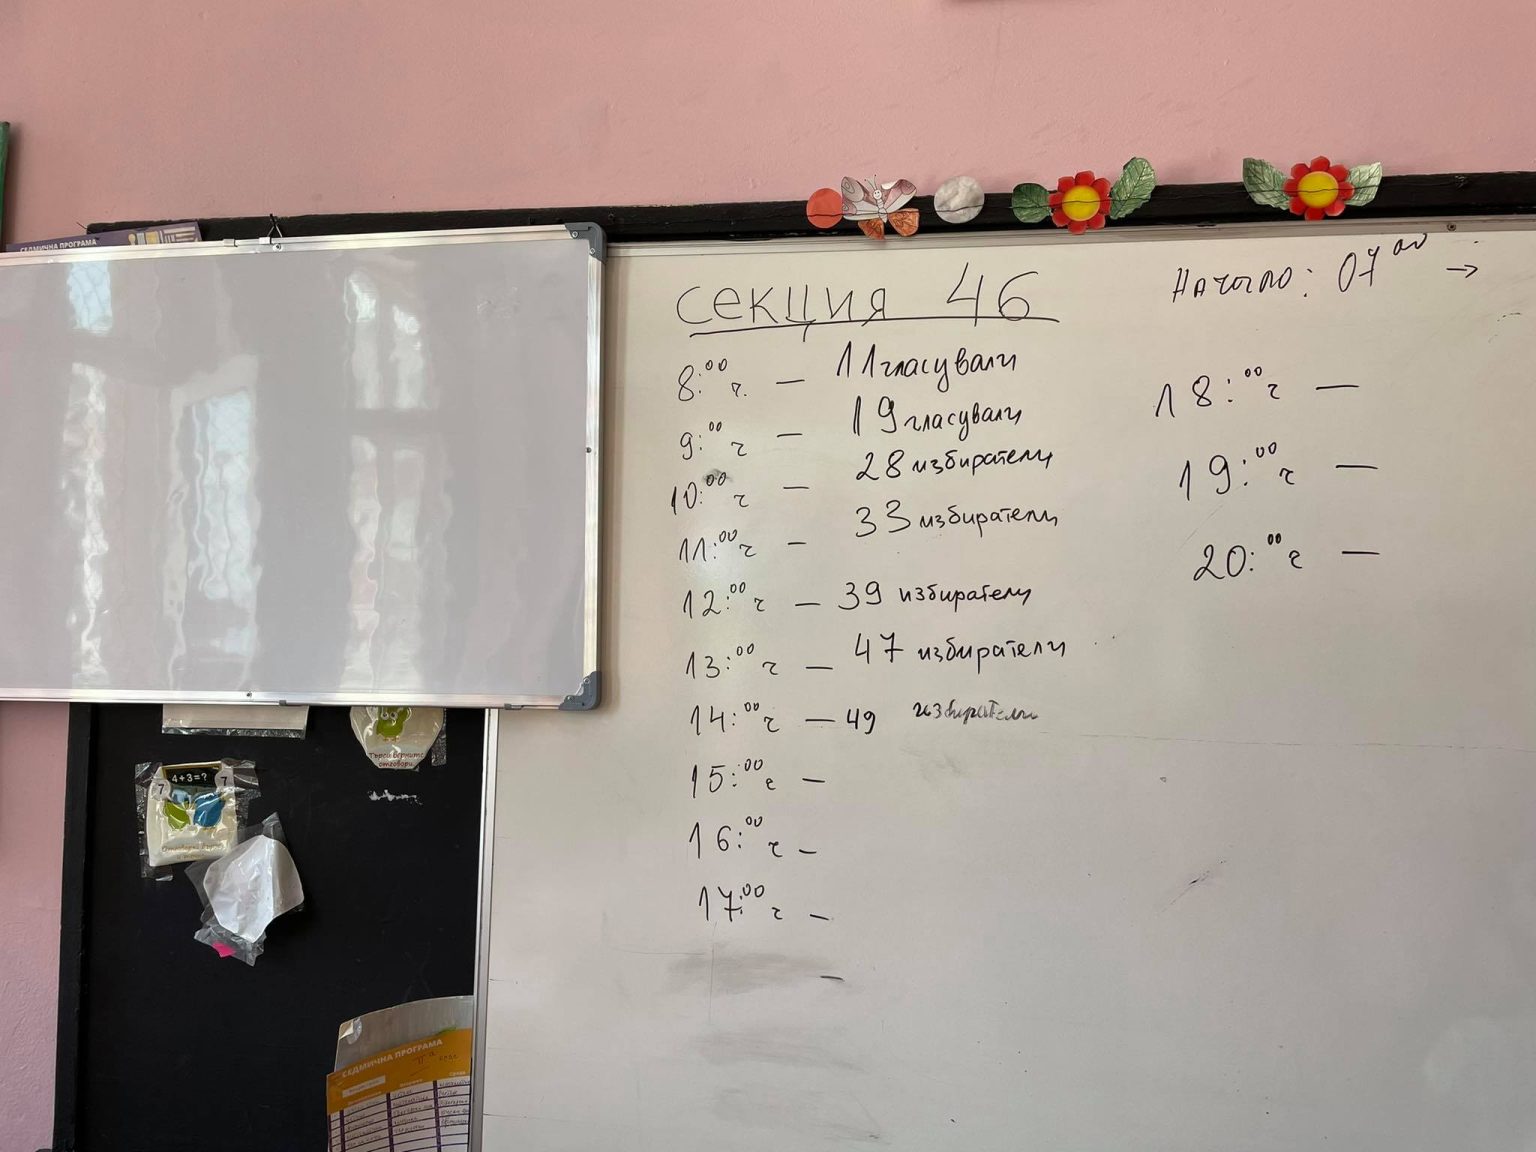 СЕДМИЧНА ПРОГРАМА
секция 46
Начало: 07 00 →
8:00 ч. — 11 гласували
9:00 ч — 19 гласували
10:00 ч — 28 избиратели
11:00 ч — 33 избиратели
12:00 ч — 39 избиратели
13:00 ч — 47 избиратели
14:00 ч — 49 избиратели
15:00 ч —
16:00 ч —
17:00 ч —
18:00 ч —
19:00 ч —
20:00 ч —
Търси верните
отговори
4+3=?
7 7
СЕДМИЧНА ПРОГРАМА